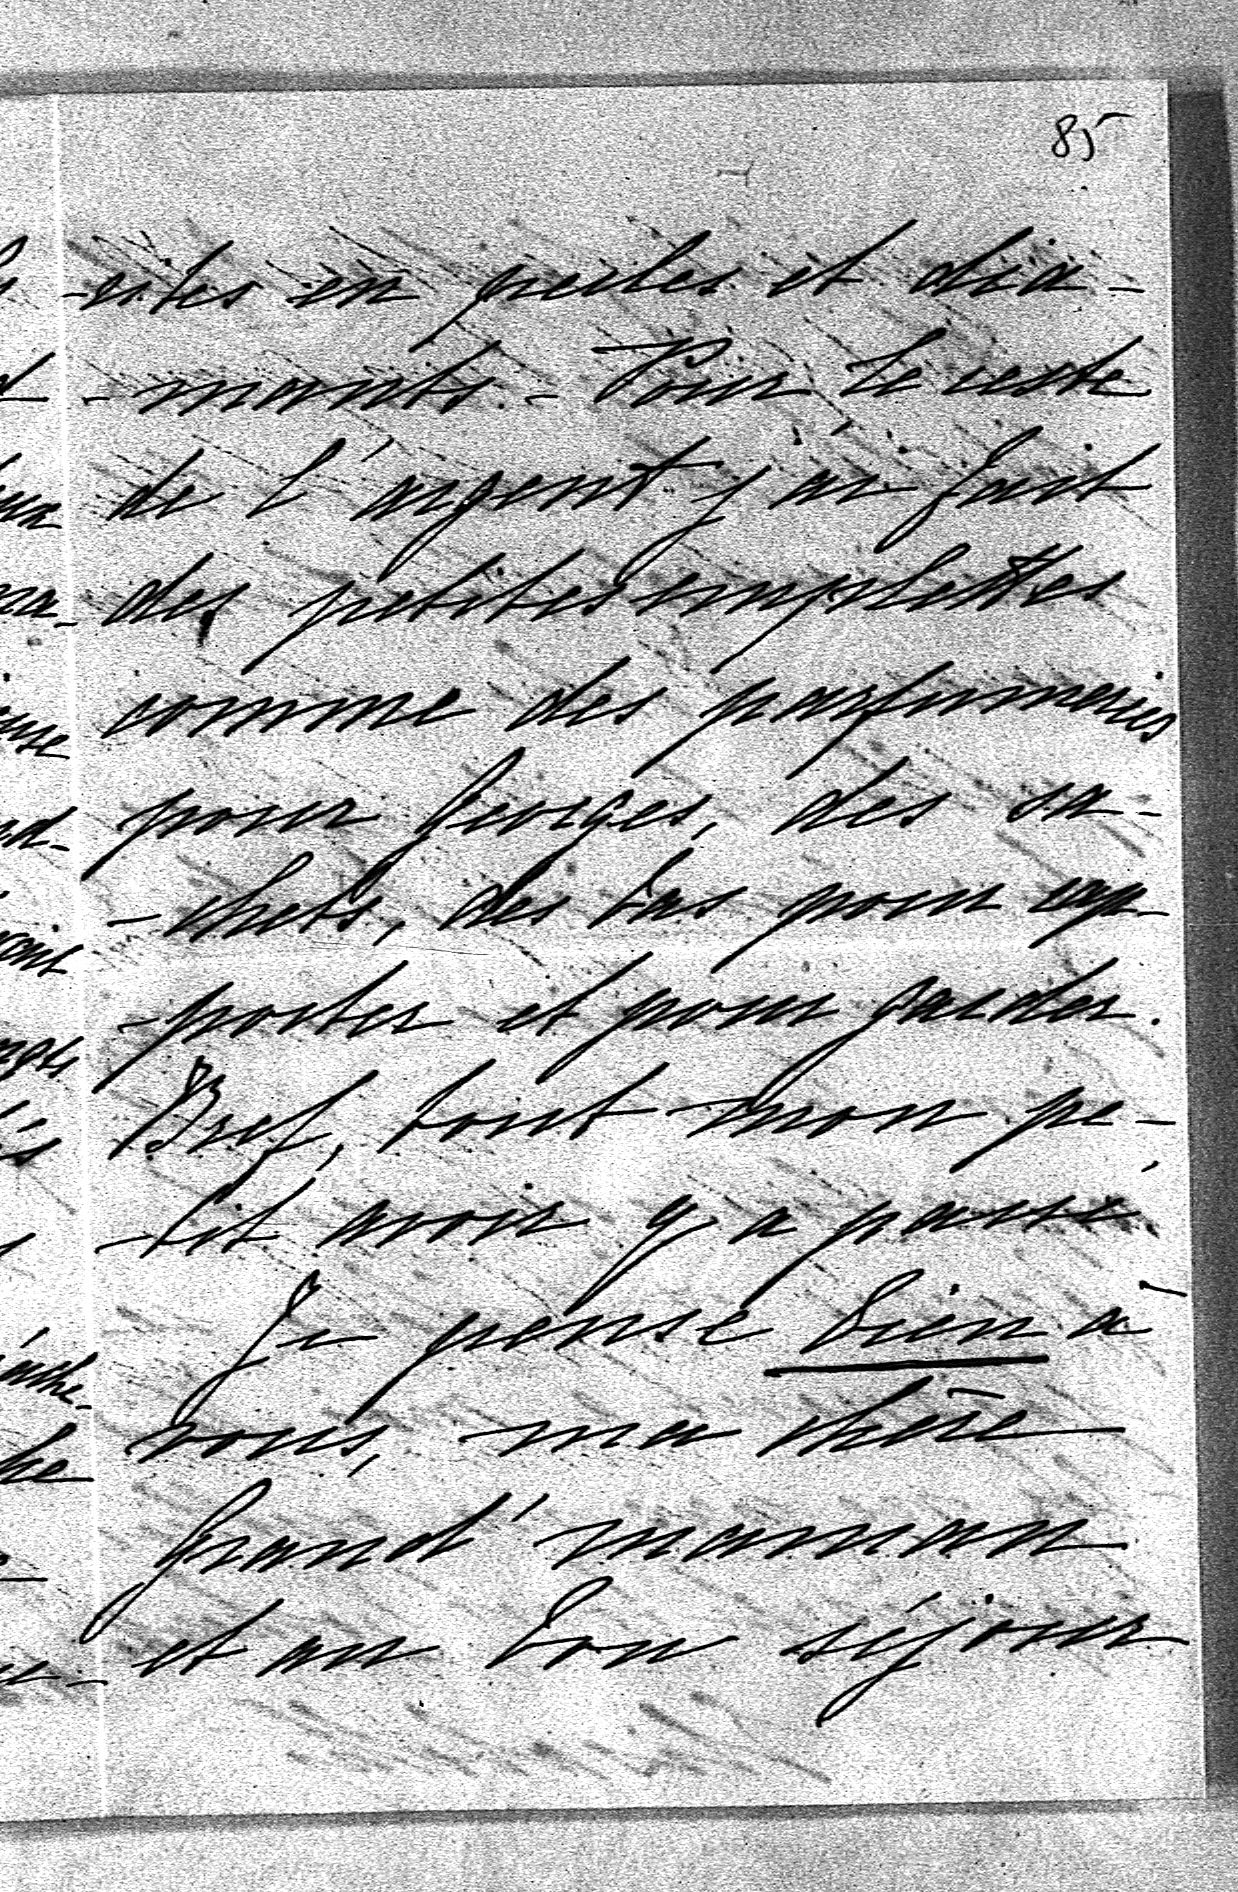 85
-estes en perles et dia-
-mants. - Pour le reste
de l'argent j'ai fait
des petites emplettes
comme des parfumeries
pour Georges, des sa-
-chets, des bas pour em-
-porter et pour garder.
Bref, tout mon pe-
-tit avoir y a passé.
Je pense bien à
vous, ma chère
Grand'maman
et au bon séjour